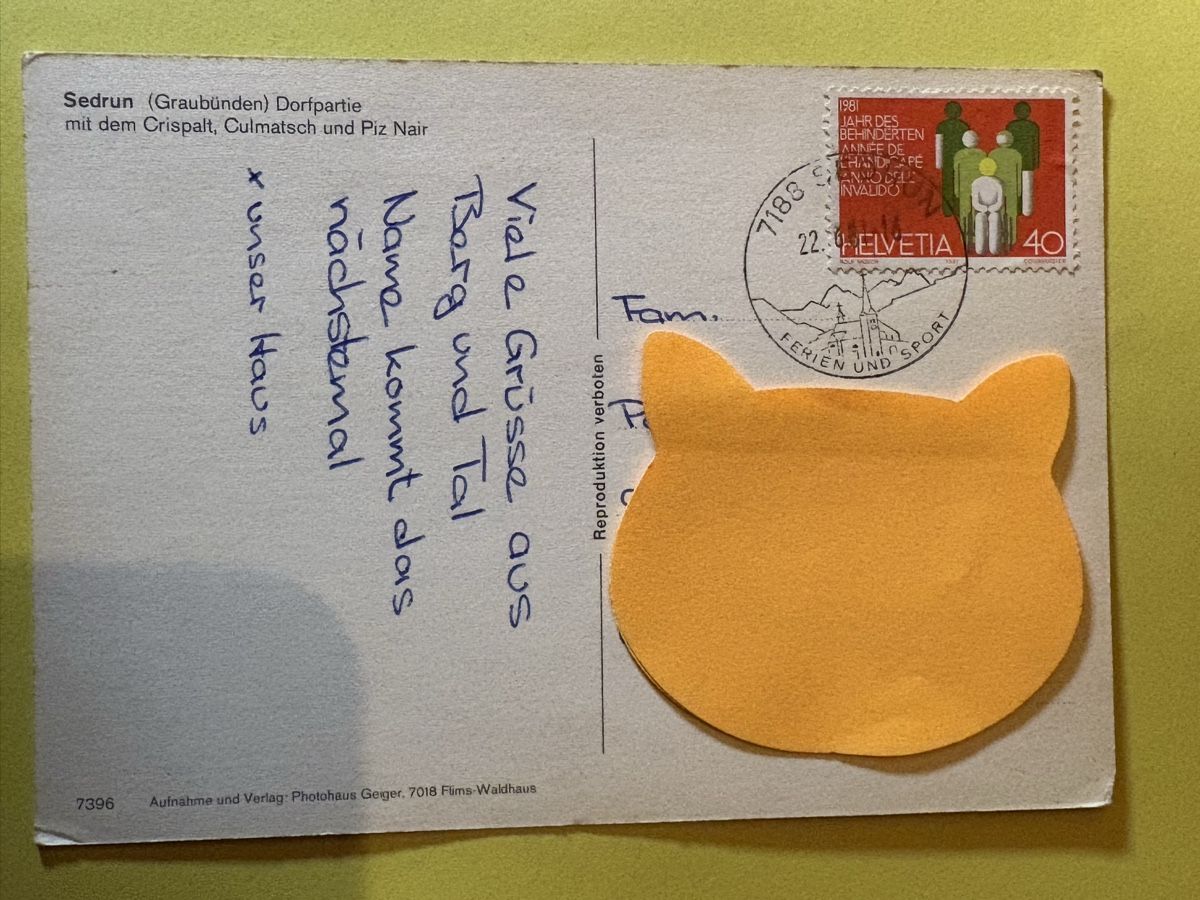 Sedrun (Graubünden) Dorfpartie
mit dem Crispalt, Culmatsch und Piz Nair
Viele Grüsse aus
Berg und Tal
Name kommt das
nächstemal
x unser Haus
7396 Aufnahme und Verlag: Photohaus Geiger, 7018 Flims-Waldhaus
Reproduktion verboten
1981
JAHR DES
BEHINDERTEN
ANNÉE DE
L'HANDICAPÉ
ANNO DELL'
INVALIDO
HELVETIA 40
7188
22.
FERIEN UND SPORT
Fam.